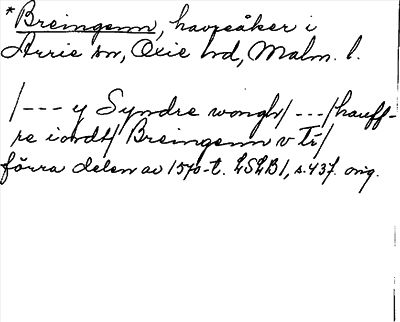 *Breingenn, havreåker i
Arrie sn, Oxie hd, Malm. l.
/--- y Syndre wongh/ ---/hauff-
re iordt/ Breingenn v Tí/
förra delen av 1570-t. LSLB1, s. 437. orig.